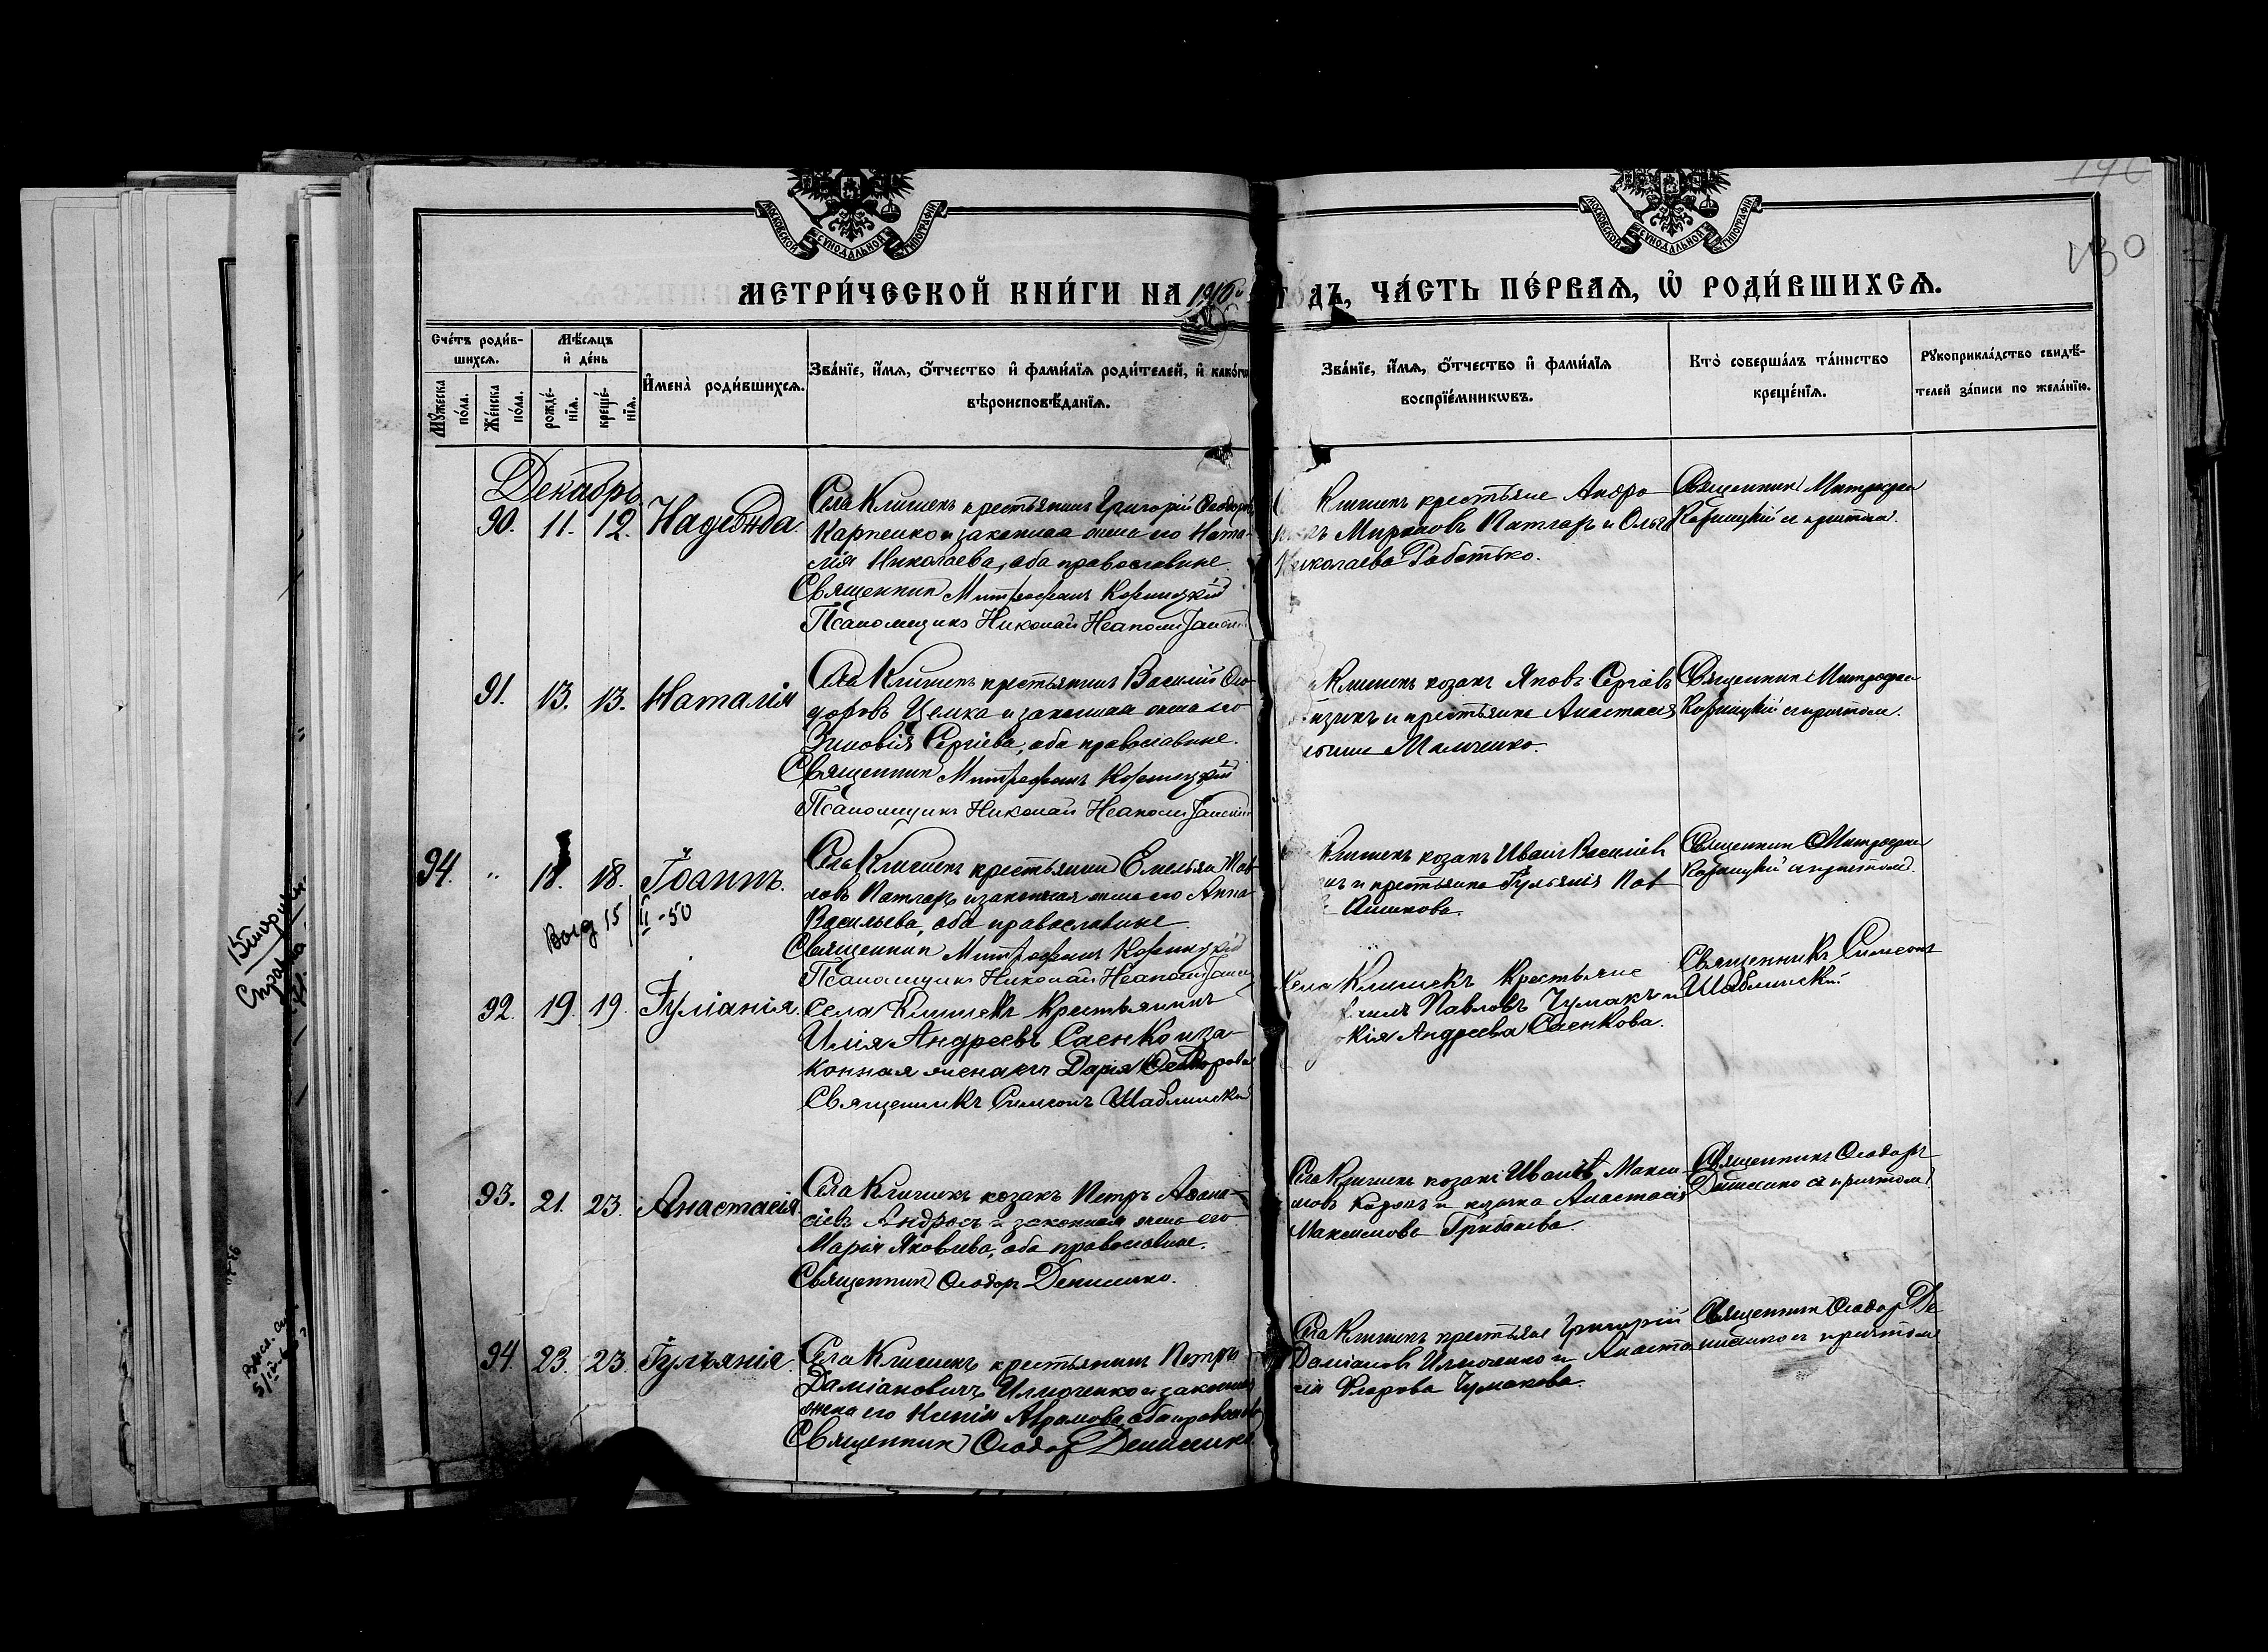 МОСКОВСКОЙ СУНОДАЛЬНОЙ ТИПОГРАФІИ
МОСКОВСКОЙ СУНОДАЛЬНОЙ ТИПОГРАФІИ
МЕТРИ́ЧЕСКОЙ КНИ́ГИ НА 1910 го́дъ, ЧА́СТЬ ПЕ́РВАѦ, Ѡ҆ РОДИ́ВШИХСѦ.
Сче́тъ роди́вшихсѧ.
Мꙋ́жеска по́ла.
Же́нска по́ла.
Мѣ́сѧцъ и҆ де́нь
рожде́нїѧ.
креще́нїѧ.
И҆мена̀ роди́вшихсѧ.
Зва́нїе, и҆́мѧ, ѻ҆́тчество и҆ фами́лїѧ роди́телей, и҆ како́гѡ
вѣроисповѣ́данїѧ.
Зва́нїе, и҆́мѧ, ѻ҆́тчество и҆ фами́лїѧ
воспрїе́мникѡвъ.
Кто̀ соверша́лъ та́инство
креще́нїѧ.
Рꙋкоприкла́дство свидѣ́-
телей за́писи по жела́нїю.
Декабрь
90. 11. 12. Надежда.
Села Клишекъ крестьянинъ Григорій Ѳеодоровъ
Карпенко и законная жена его Ната-
лія Николаева, оба православные.
Священникъ Митрофанъ Корницкій
Псаломщикъ Николай Неаполитанскій
Клишекъ крестьяне Андро
Мироновъ Патларъ и Ольга
Николаева Работько.
Священникъ Митрофанъ
Корницкій съ причтомъ.
91. 13. 13. Наталія
Села Клишекъ крестьянинъ Василій Ѳео-
доровъ Цемка и законная жена его
Зиновія Сергіева, оба православные.
Священникъ Митрофанъ Корницкій
Псаломщикъ Николай Неаполитанскій
Клишекъ козакъ Яковъ Сергіевъ
и крестьянка Анастасія
Мальченко.
Священникъ Митрофанъ
Корницкій съ причтомъ.
94. " 18. 18. Іоаннъ.
Выд 15/II-50
Села Клишекъ крестьянинъ Емельян Пав-
ловъ Патларъ и законная жена его Анна
Васильева, оба православные
Священникъ Митрофанъ Корницкій
Псаломщикъ Николай Неаполитанскій
Клишекъ козакъ Иванъ Василіев
и крестьянка Іульянія Пав
Ашикова.
Священникъ Митрофанъ
Корницкій съ причтомъ.
92. 19. 19. Іуліанія.
Села Клишекъ Крестьянинъ
Илія Андреевъ Саенко и за-
конная жена его Дарія Ѳеодорова
Священникъ Симеонъ Шаблинскій
Села Клишекъ Крестьяне
Павловъ Чумакъ и
Андреева Саенкова.
Священникъ Симеонъ
Шаблинскій.
93. 21. 23. Анастасія.
Села Клишекъ козакъ Петръ Аѳана-
сіевъ Андросъ и законная жена его
Марія Яковлева, оба православные.
Священникъ Ѳеодоръ Денисенко.
Села Клишекъ козакъ Иванъ Макси-
мовъ и козачка Анастасія
Максимова Грибанева.
Священникъ Ѳеодоръ
Денисенко съ причтомъ
94. 23. 23. Іульянія.
Села Клишекъ крестьянинъ Петръ
Даміановичъ Илюченко и законная
жена его Ксенія Абрамова, оба православ
Священникъ Ѳеодоръ Денисенко
Села Клишекъ крестьяне Григорій
Даміановъ Илюченко и Анаста-
сія Флорова Чумакова.
Священникъ Ѳеодор Де
нисенко съ причтом